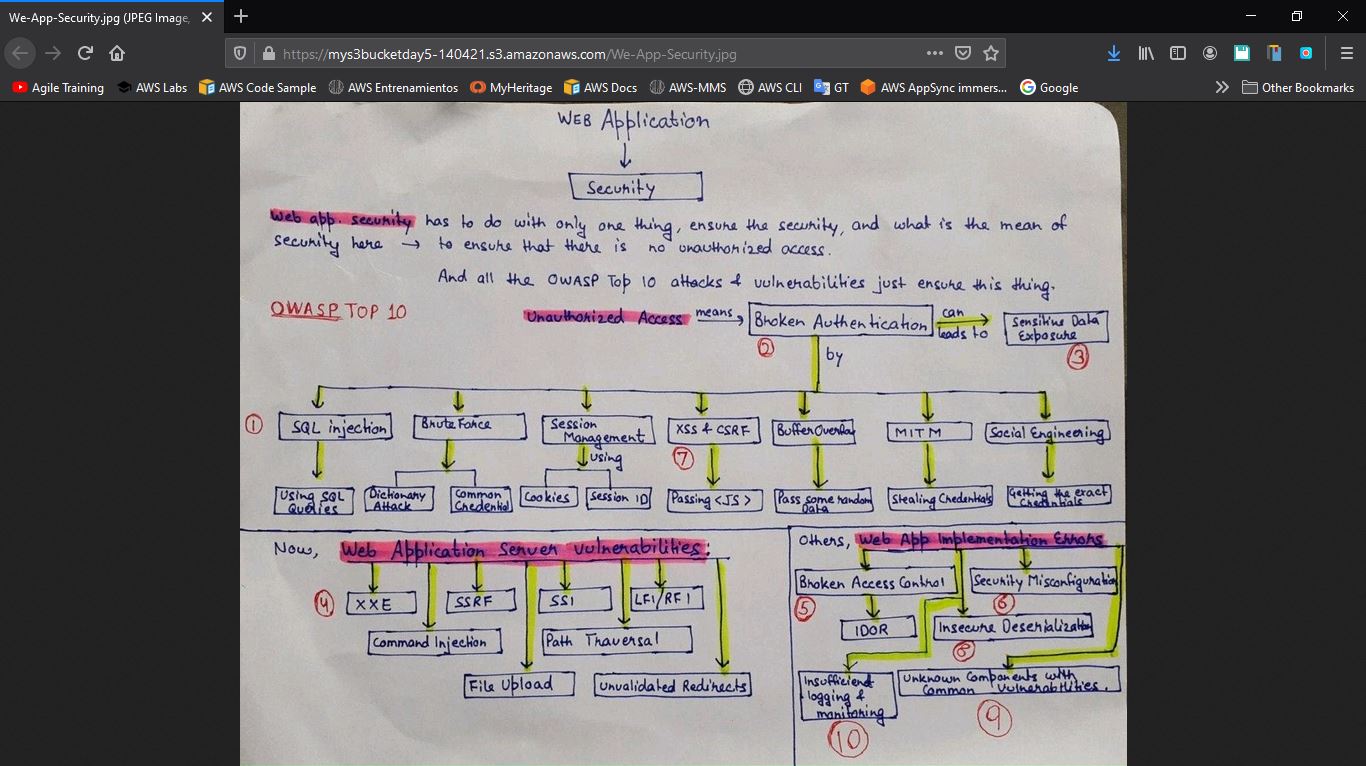 We-App-Security.jpg (JPEG Image,
https://mys3bucketday5-140421.s3.amazonaws.com/We-App-Security.jpg
Agile Training AWS Labs AWS Code Sample AWS Entrenamientos MyHeritage AWS Docs AWS-MMS AWS CLI GT AWS AppSync immers... Google Other Bookmarks
WEB Application
Security
Web app. security has to do with only one thing, ensure the security, and what is the mean of
security here → to ensure that there is no unauthorized access.
And all the OWASP Top 10 attacks & vulnerabilities just ensure this thing.
OWASP TOP 10
Unauthorized Access means Broken Authentication can leads to Sensitive Data Exposure
2
3
by
1
SQL injection
Brute Force
Session Management
XSS & CSRF
Buffer Overflow
MITM
Social Engineering
7
using
Using SQL Queries
Dictionary Attack
Common Credential
Cookies
Session ID
Passing <JS>
Pass some random Data
Stealing Credentials
Getting the exact Credentials
Now, Web Application Server vulnerabilities:
4
XXE
SSRF
SSI
LFI/RFI
Command Injection
Path Traversal
File Upload
Unvalidated Redirects
Others, Web App Implementation Errors
Broken Access Control
Security Misconfiguration
5
6
IDOR
Insecure Deserialization
8
Insufficient logging & monitoring
Unknown Components with Common Vulnerabilities.
10
9